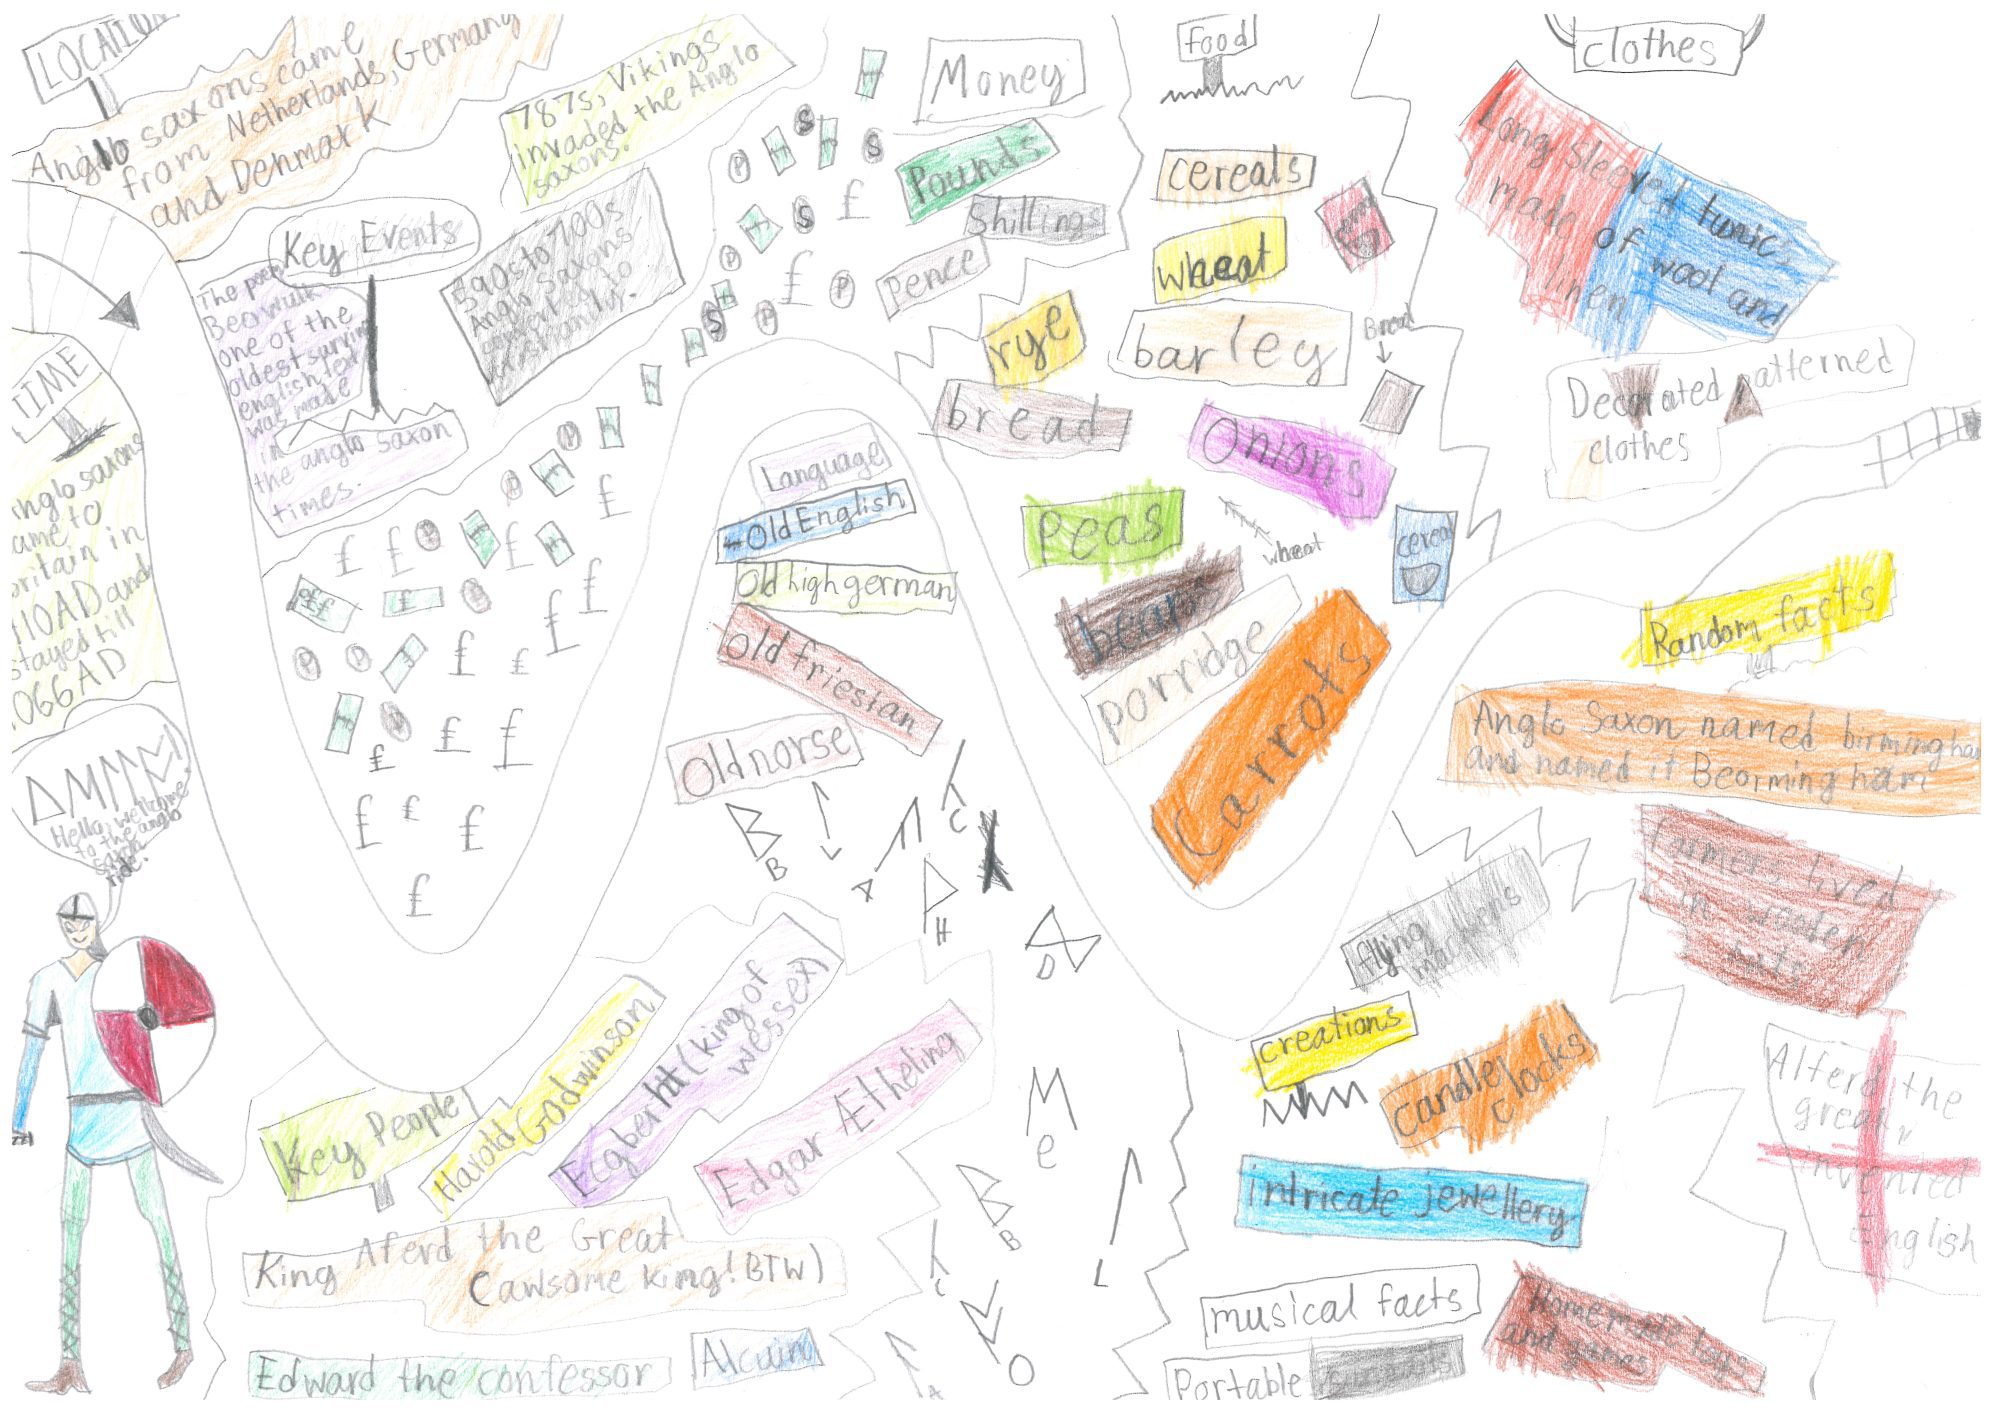 LOCATION
Anglo saxons came
from Netherlands, Germany
and Denmark
787s, Vikings
invaded the Anglo
saxons.
Key Events
The poem
Beowulf
one of the
oldest surviving
english text
was made
in
the anglo saxon
times.
590s to 700s
Anglo Saxons
to
TIME
Anglo saxons
came to
britain in
410AD and
stayed till
1066AD
Hello, welcome
to the anglo
ride.
Money
Pounds
Shillings
Pence
food
cereals
wheat
rye
barley
bread
Bread
Onions
Peas
wheat
cereal
beans
porridge
Carrots
clothes
Long Sleeved tunics
made of wool and
linen
Decorated patterned
clothes
Language
Old English
Old high german
Old friestan
Old norse
B
L
A
C
H
D
M
e
B
L
C
O
A
Random facts
Anglo Saxon named birmingham
and named it Beormingham
farmers lived
in wooden
huts
Alferd the
great
invented
English
flying
machines
creations
candle
clocks
intricate jewellery
musical facts
Portable
Homemade toys
and games
Key People
Harold Godwinson
Ecgberht (king of
wessex)
Edgar Ætheling
King Aferd the Great
(awsome king! BTW)
Edward the confessor
Alcuin